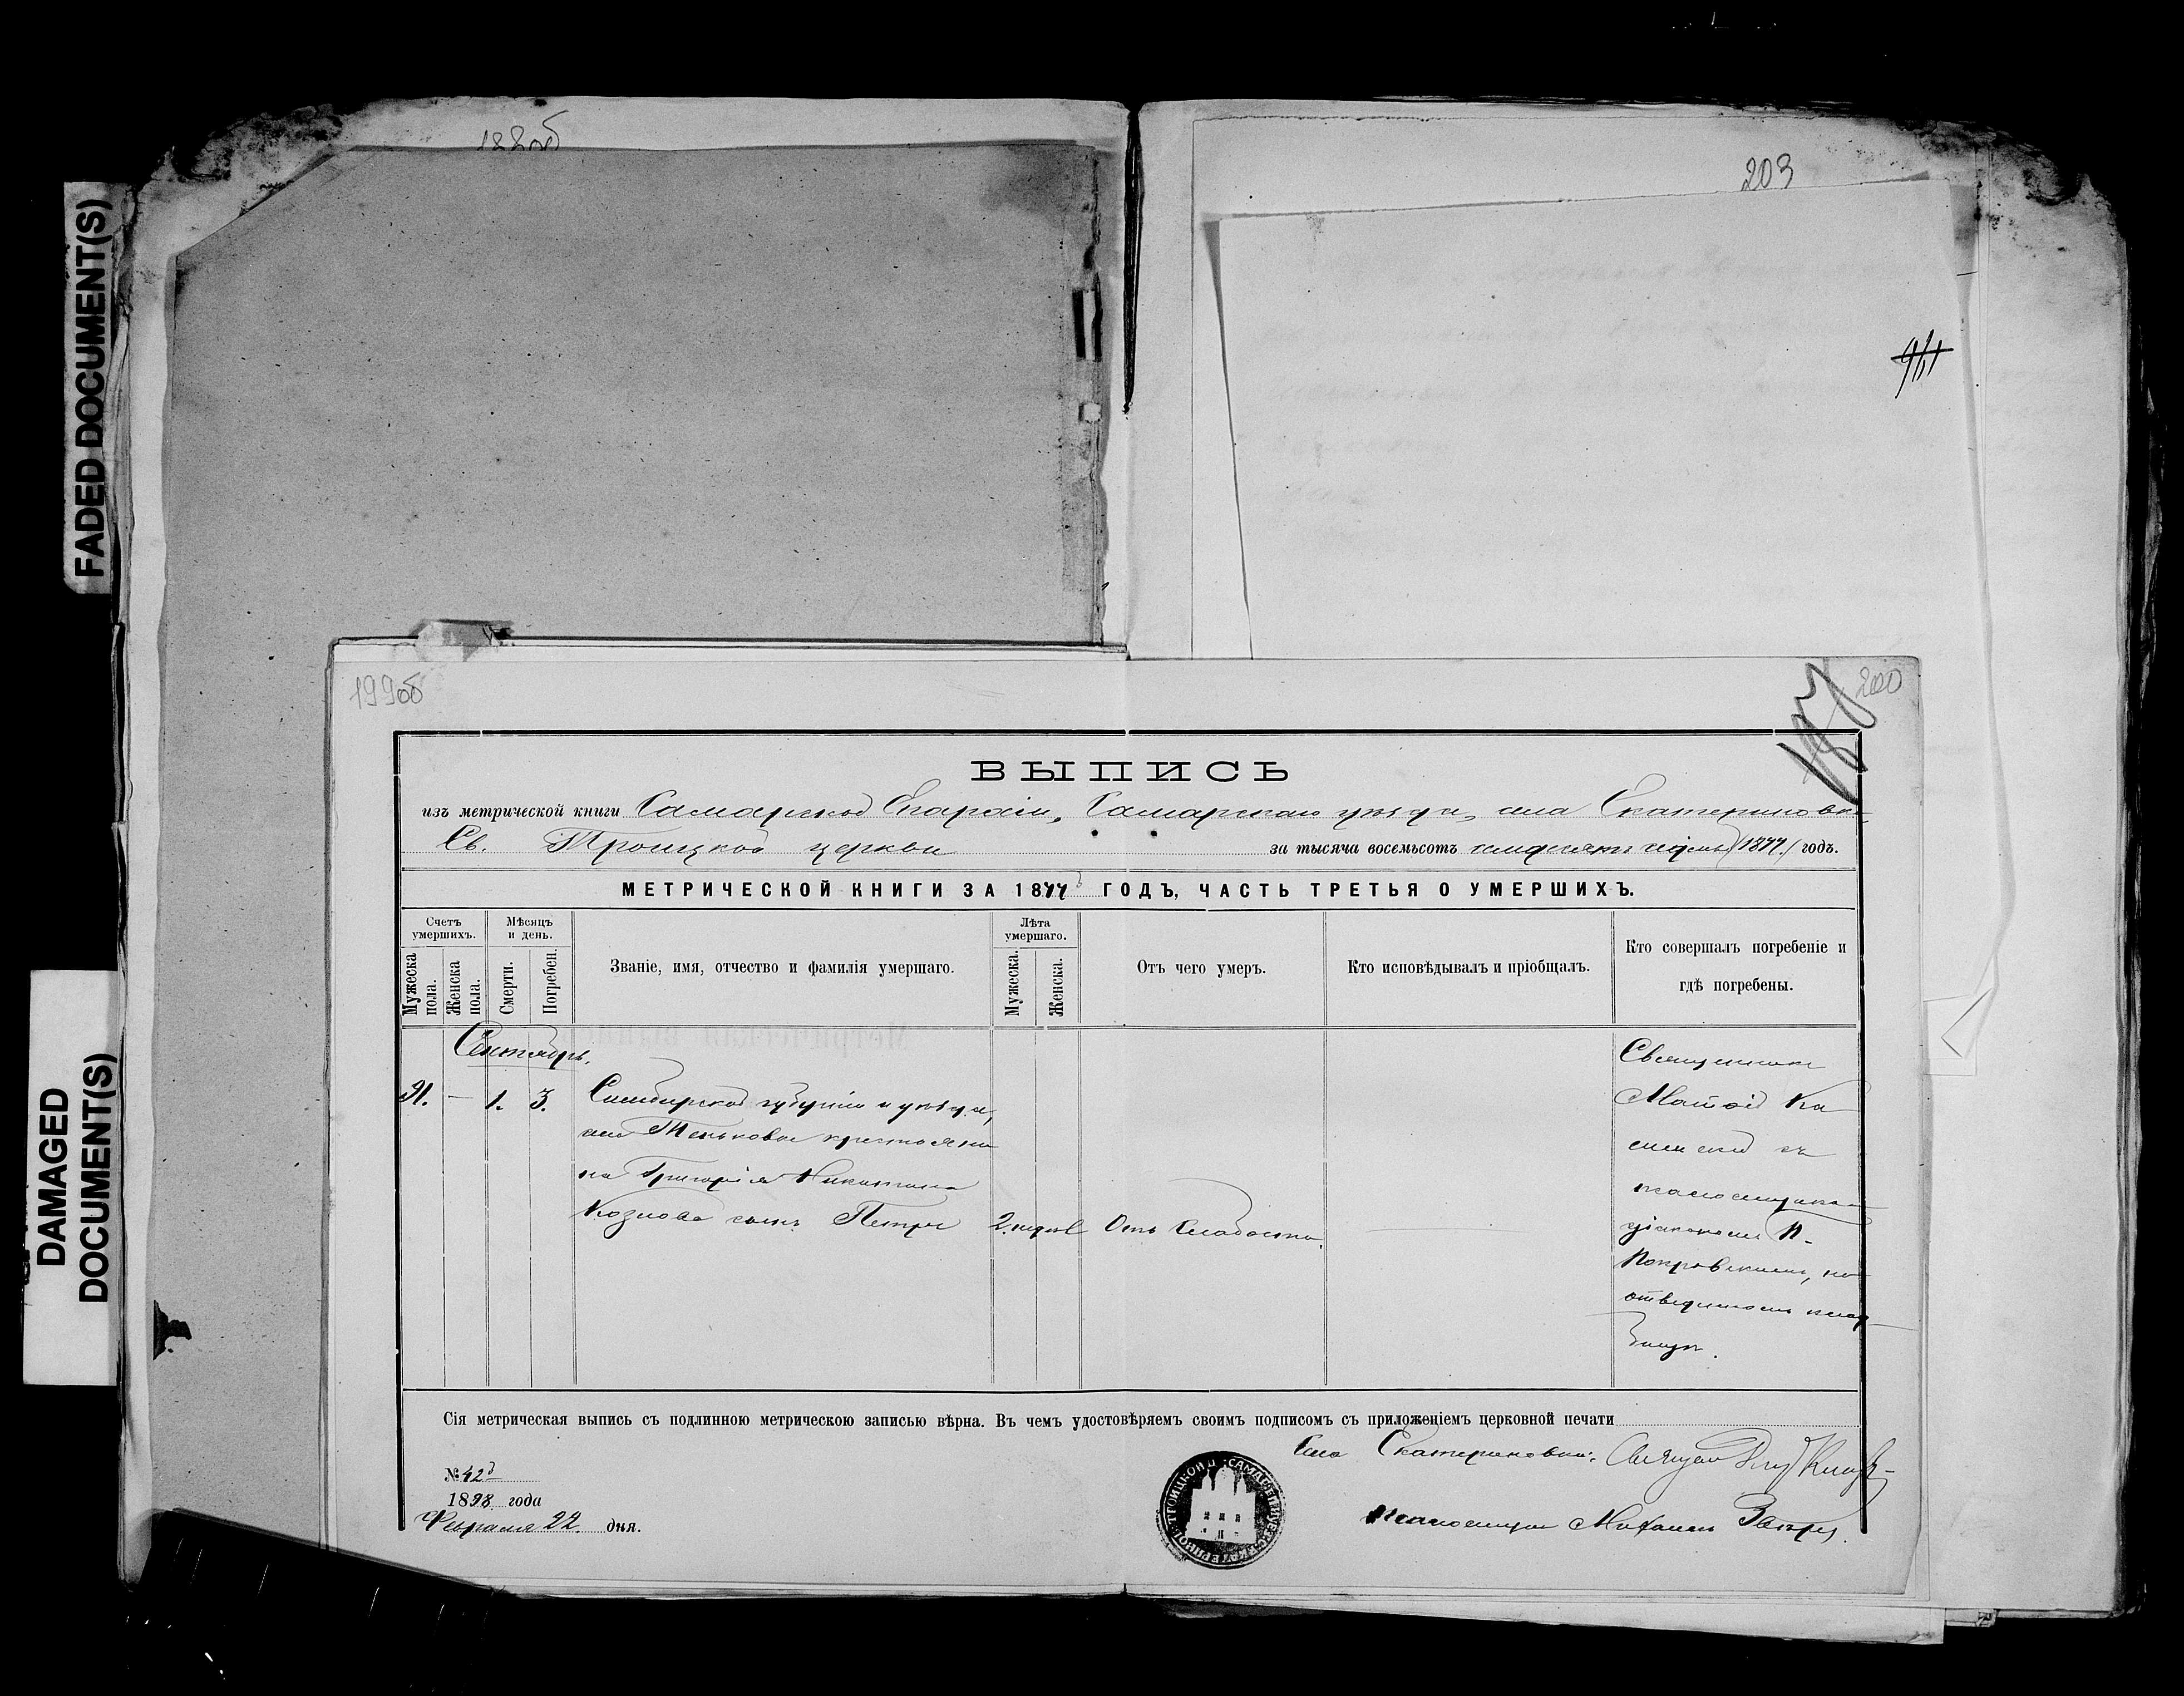 FADED DOCUMENT(S)
DAMAGED DOCUMENT(S)
188об
203
199об
200
ВЫПИСЬ
изъ метрической книги Самарской Епархіи, Самарскаго уѣзда, села Екатериновки
Св. Троицкой церкви за тысяча восемьсотъ семдесятъ седьмой /1877./ годъ.
МЕТРИЧЕСКОЙ КНИГИ ЗА 1877 ГОДЪ, ЧАСТЬ ТРЕТЬЯ О УМЕРШИХЪ.
Счетъ умершихъ.
Мужеска пола.
Женска пола.
Мѣсяцъ и день.
Смерти.
Погребен.
Званіе, имя, отчество и фамилія умершаго.
Лѣта умершаго.
Мужеска.
Женска.
Отъ чего умеръ.
Кто исповѣдывалъ и пріобщалъ.
Кто совершалъ погребеніе и
гдѣ погребены.
Сентябрь.
— 1. 3.
Симбирской губерніи и уѣзда,
села Теньковки крестьяни
на Григорія Никитина
Козлова сынъ Петръ
2. недѣль
Отъ слабости.
Священникъ
Матѳій Ка
съ
псаломщикомъ
діакономъ П.
Покровскимъ, на
отведенномъ клад
бищѣ.
Сія метрическая выпись съ подлинною метрическою записью вѣрна. Въ чемъ удостовѣряемъ своимъ подписомъ съ приложеніемъ церковной печати
Села Екатериновки: Священ
Псаломщикъ Михаилъ
№ 42
1898 года
Февраля 22. дня.